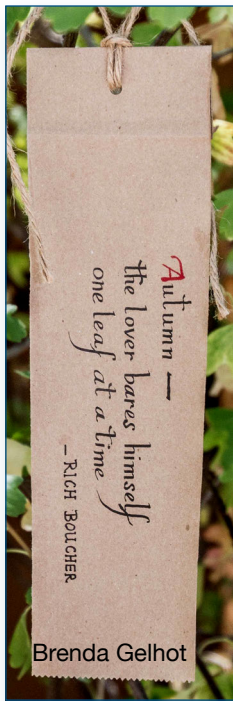 Autumn —
the lover bares himself
one leaf at a time
—RICH BOUCHER
Brenda Gelhot